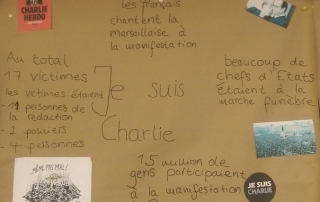 CHARLIE HEBDO
les français
chantent la
marseillaise à
la manifestation
Au total
17 victimes
les victimes étaient
- 11 personnes de
la rédaction
- 2 policiers
- 4 personnes
Je suis
Charlie
beaucoup de
chefs d'Etats
étaient à la
marche funèbre!
MÊME PAS MAL!
1.5 million de
gens participaient
à la manifestation
JE SUIS
CHARLIE